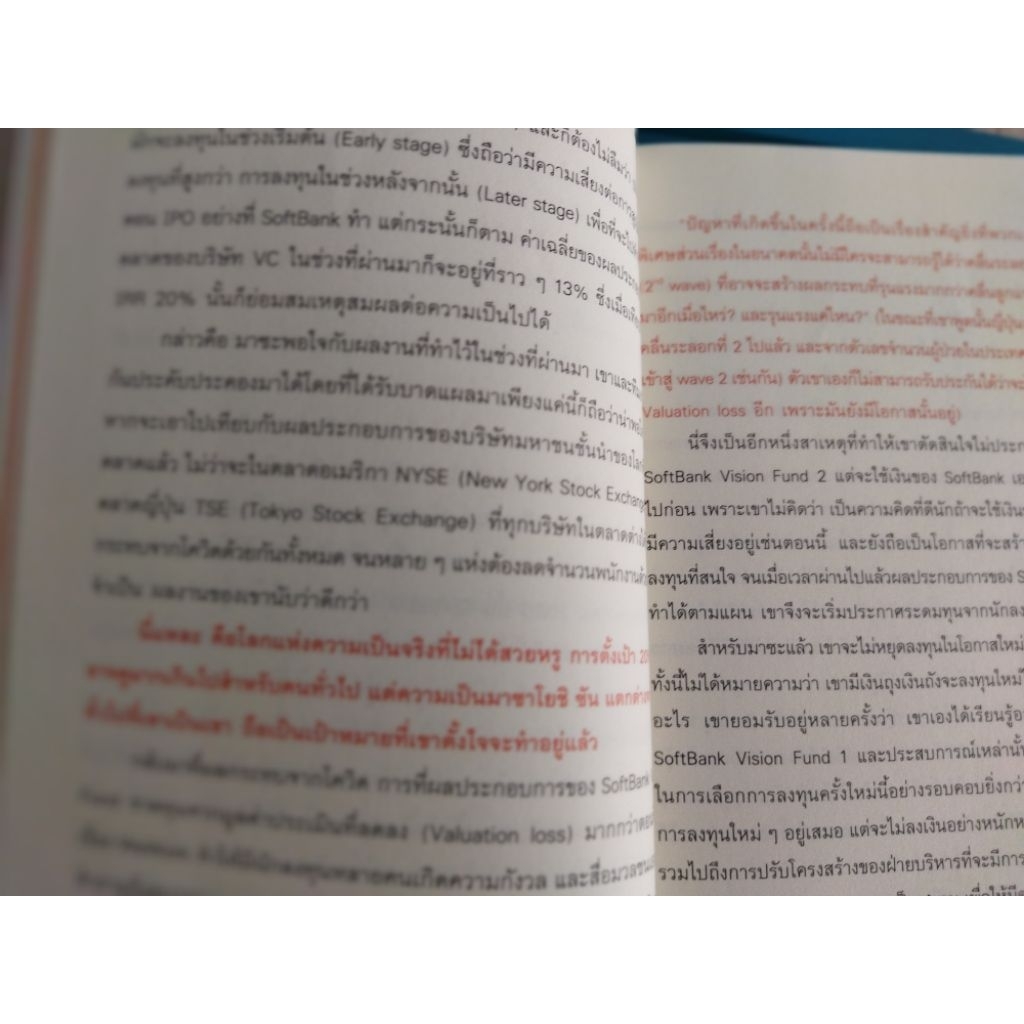 และก็ต้องไม่ลืมว่า
มักจะลงทุนในช่วงเริ่มต้น (Early stage) ซึ่งถือว่ามีความเสี่ยงต่อการ
ลงทุนที่สูงกว่า การลงทุนในช่วงหลังจากนั้น (Later stage) เพื่อที่จะ
ตอน IPO อย่างที่ SoftBank ทำ แต่กระนั้นก็ตาม ค่าเฉลี่ยของผลประ
ตลาดของบริษัท VC ในช่วงที่ผ่านมาก็จะอยู่ที่ราว ๆ 13% ซึ่งเมื่อเทีย
IRR 20% นั้นก็ย่อมสมเหตุสมผลต่อความเป็นไปได้
กล่าวคือ มาซะพอใจกับผลงานที่ทำไว้ในช่วงที่ผ่านมา เขาและทีม
กันประคับประคองมาได้โดยที่ได้รับบาดแผลมาเพียงแค่นี้ก็ถือว่าน่าพอ
หากจะเอาไปเทียบกับผลประกอบการของบริษัทมหาชนชั้นนำของโลก
ตลาดแล้ว ไม่ว่าจะในตลาดอเมริกา NYSE (New York Stock Exchang
ตลาดญี่ปุ่น TSE (Tokyo Stock Exchange) ที่ทุกบริษัทในตลาดต่าง
กระทบจากโควิดด้วยกันทั้งหมด จนหลาย ๆ แห่งต้องลดจำนวนพนักงาน
จำเป็น ผลงานของเขานับว่าดีกว่า
นี่แหละ คือโลกแห่งความเป็นจริงที่ไม่ได้สวยหรู การตั้งเป้า 20
อาจดูมากเกินไปสำหรับคนทั่วไป แต่ความเป็นมาซาโยชิ ซัน แตกต่าง
ถือเป็นเป้าหมายที่เขาตั้งใจจะทำอยู่แล้ว
การที่ผลประกอบการของ SoftBank
(Valuation loss) มากกว่า
หลายคนเกิดความกังวล และสื่อมวลชน
"ปัญหาที่เกิดขึ้นในครั้งนี้ถือเป็นเรื่องสำคัญยิ่งที่พวกเ
พิเศษส่วนเรื่องในอนาคตนั้นไม่มีใครจะสามารถรู้ได้ว่าคลื่นระลอก
2nd wave) ที่อาจจะสร้างผลกระทบที่รุนแรงมากกว่าคลื่นลูก
มาอีกเมื่อไหร่? และรุนแรงแค่ไหน?" (ในขณะที่เขาพูดนั้นญี่ปุ่น
คลื่นระลอกที่ 2 ไปแล้ว และจากตัวเลขจำนวนผู้ป่วยในประเทศ
เข้าสู่ wave 2 เช่นกัน) ตัวเขาเองก็ไม่สามารถรับประกันได้ว่าจะ
Valuation loss อีก เพราะมันยังมีโอกาสนั้นอยู่)
นี่จึงเป็นอีกหนึ่งสาเหตุที่ทำให้เขาตัดสินใจไม่ประก
SoftBank Vision Fund 2 แต่จะใช้เงินของ SoftBank เอ
ไปก่อน เพราะเขาไม่คิดว่า เป็นความคิดที่ดีนักถ้าจะใช้เงิน
มีความเสี่ยงอยู่เช่นตอนนี้ และยังถือเป็นโอกาสที่จะสร้า
ลงทุนที่สนใจ จนเมื่อเวลาผ่านไปแล้วผลประกอบการของ S
ทำได้ตามแผน เขาจึงจะเริ่มประกาศระดมทุนจากนักลง
สำหรับมาซะแล้ว เขาจะไม่หยุดลงทุนในโอกาสใหม่
ทั้งนี้ไม่ได้หมายความว่า เขามีเงินถุงเงินถังจะลงทุนใหม่
อะไร เขายอมรับอยู่หลายครั้งว่า เขาเองได้เรียนรู้อ
SoftBank Vision Fund 1 และประสบการณ์เหล่านั้
ในการเลือกการลงทุนครั้งใหม่นี้อย่างรอบคอบยิ่งกว่
การลงทุนใหม่ ๆ อยู่เสมอ แต่จะไม่ลงเงินอย่างหนักห
รวมไปถึงการปรับโครงสร้างของฝ่ายบริหารที่จะมีการ